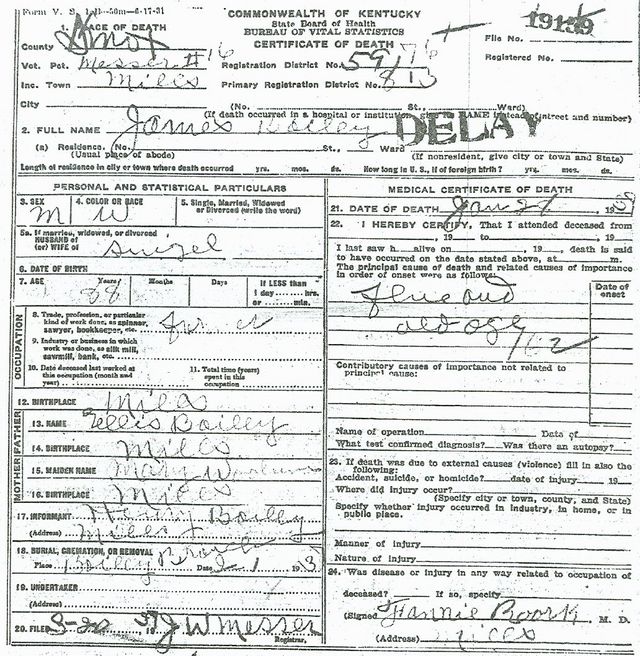 Form V. S. 1-B—50m—6-17-31
COMMONWEALTH OF KENTUCKY
State Board of Health
BUREAU OF VITAL STATISTICS
CERTIFICATE OF DEATH
File No.
Registered No.
1. PLACE OF DEATH
County Knox
Vot. Pct. Messer #16
Registration District No.
Inc. Town Mills
Primary Registration District No. 813
City (No. St., Ward)
(If death occurred in a hospital or institution, give its NAME instead of street and number)
2. FULL NAME James Bailey
DELAY
(a) Residence. No. St., Ward
(Usual place of abode) (If nonresident, give city or town and State)
Length of residence in city or town where death occurred yrs. mos. ds. How long in U. S., if of foreign birth? yrs. mos. ds.
PERSONAL AND STATISTICAL PARTICULARS
3. SEX M
4. COLOR OR RACE W
5. Single, Married, Widowed or Divorced (write the word)
5a. If married, widowed, or divorced
HUSBAND of
(or) WIFE of
6. DATE OF BIRTH
7. AGE Years 88 Months Days If LESS than
1 day hrs.
or min.
OCCUPATION
8. Trade, profession, or particular
kind of work done, as spinner,
sawyer, bookkeeper, etc.
9. Industry or business in which
work was done, as silk mill,
sawmill, bank, etc.
10. Date deceased last worked at
this occupation (month and
year)
11. Total time (years)
spent in this
occupation
FATHER
12. BIRTHPLACE Mills
13. NAME Bailey
14. BIRTHPLACE Mills
MOTHER
15. MAIDEN NAME Mary
16. BIRTHPLACE Mills
17. INFORMANT Henry Bailey
(Address) Mills
18. BURIAL, CREMATION, OR REMOVAL
Place Bailey Date 2 1 193
19. UNDERTAKER
(Address)
20. FILED 5-20 J W Messer
Registrar.
MEDICAL CERTIFICATE OF DEATH
21. DATE OF DEATH Jan
22. I HEREBY CERTIFY, That I attended deceased from
, 19 to , 19
I last saw h alive on , 19 , death is said
to have occurred on the date stated above, at m.
The principal cause of death and related causes of importance
in order of onset were as follows:
Date of
onset
flue and
old age
162
Contributory causes of importance not related to
principal cause:
Name of operation Date of
What test confirmed diagnosis? Was there an autopsy?
23. If death was due to external causes (violence) fill in also the
following:
Accident, suicide, or homicide? date of injury 19
Where did injury occur?
(Specify city or town, county, and State)
Specify whether injury occurred in industry, in home, or in
public place.
Manner of injury
Nature of injury
24. Was disease or injury in any way related to occupation of
deceased? If so, specify
(Signed) Fannie Roark M. D.
(Address) Mills